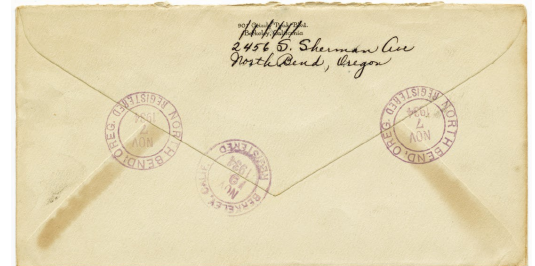 Berkeley, California
2456 S. Sherman Ave
North Bend, Oregon
NORTH BEND, OREG. REGISTERED
NOV
7
1934
BERKELEY, REGISTERED
NOV
1934
NORTH BEND, OREG. REGISTERED
NOV
7
1934